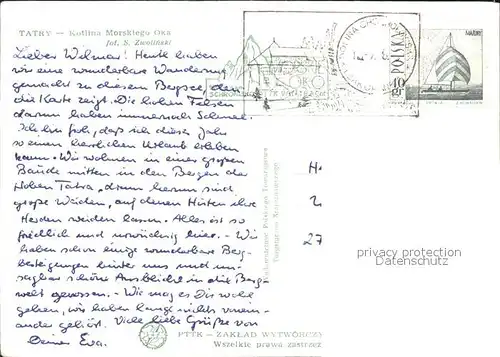 TATRY — Kotlina Morskiego Oka
fot. S. Zwoliński
Lieber Welmar! Heute haben
wir eine wunderbare Wanderung
gemacht zu diesem Bergsee, den
die Karte zeigt. Die hohen Felsen
darum haben immer noch Schnee.
Ich bin froh, daß ich dieses Jahr
so einen herrlichen Urlaub erleben
kann. Wir wohnen in einer großen
Baude mitten in den Bergen der
Hohen Tatra, drum herum sind
große Weiden, auf denen Hirten ihre
Herden weiden lassen. Alles ist so
friedlich und urwüchsig hier. - Wir
haben schon einige wunderbare Berg-
besteigungen hinter uns und un-
sagbar schöne Ausblicke in die Berg-
welt genossen. - Wie mag es Dir wohl
gehen, wir haben lange nichts vonein-
ander gehört. Viele liebe Grüße von
Deiner Eva.
POLSKA
40 gr
MAŁY
H.
2
27
privacy protection
Datenschutz
PTTK — ZAKŁAD WYTWÓRCZY
Wszelkie prawa zastrzeż